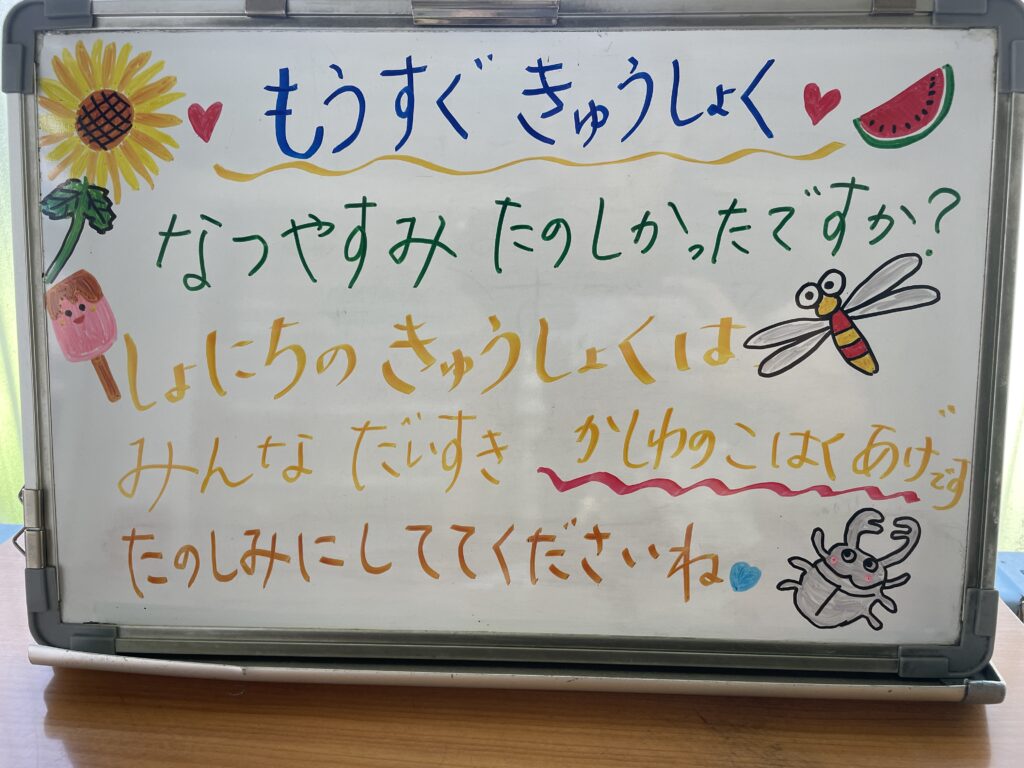 もうすぐ きゅうしょく
なつやすみ たのしかったですか?
しょにちの きゅうしょくは
みんな だいすき かしわのこはくあげです
たのしみにしててくださいね